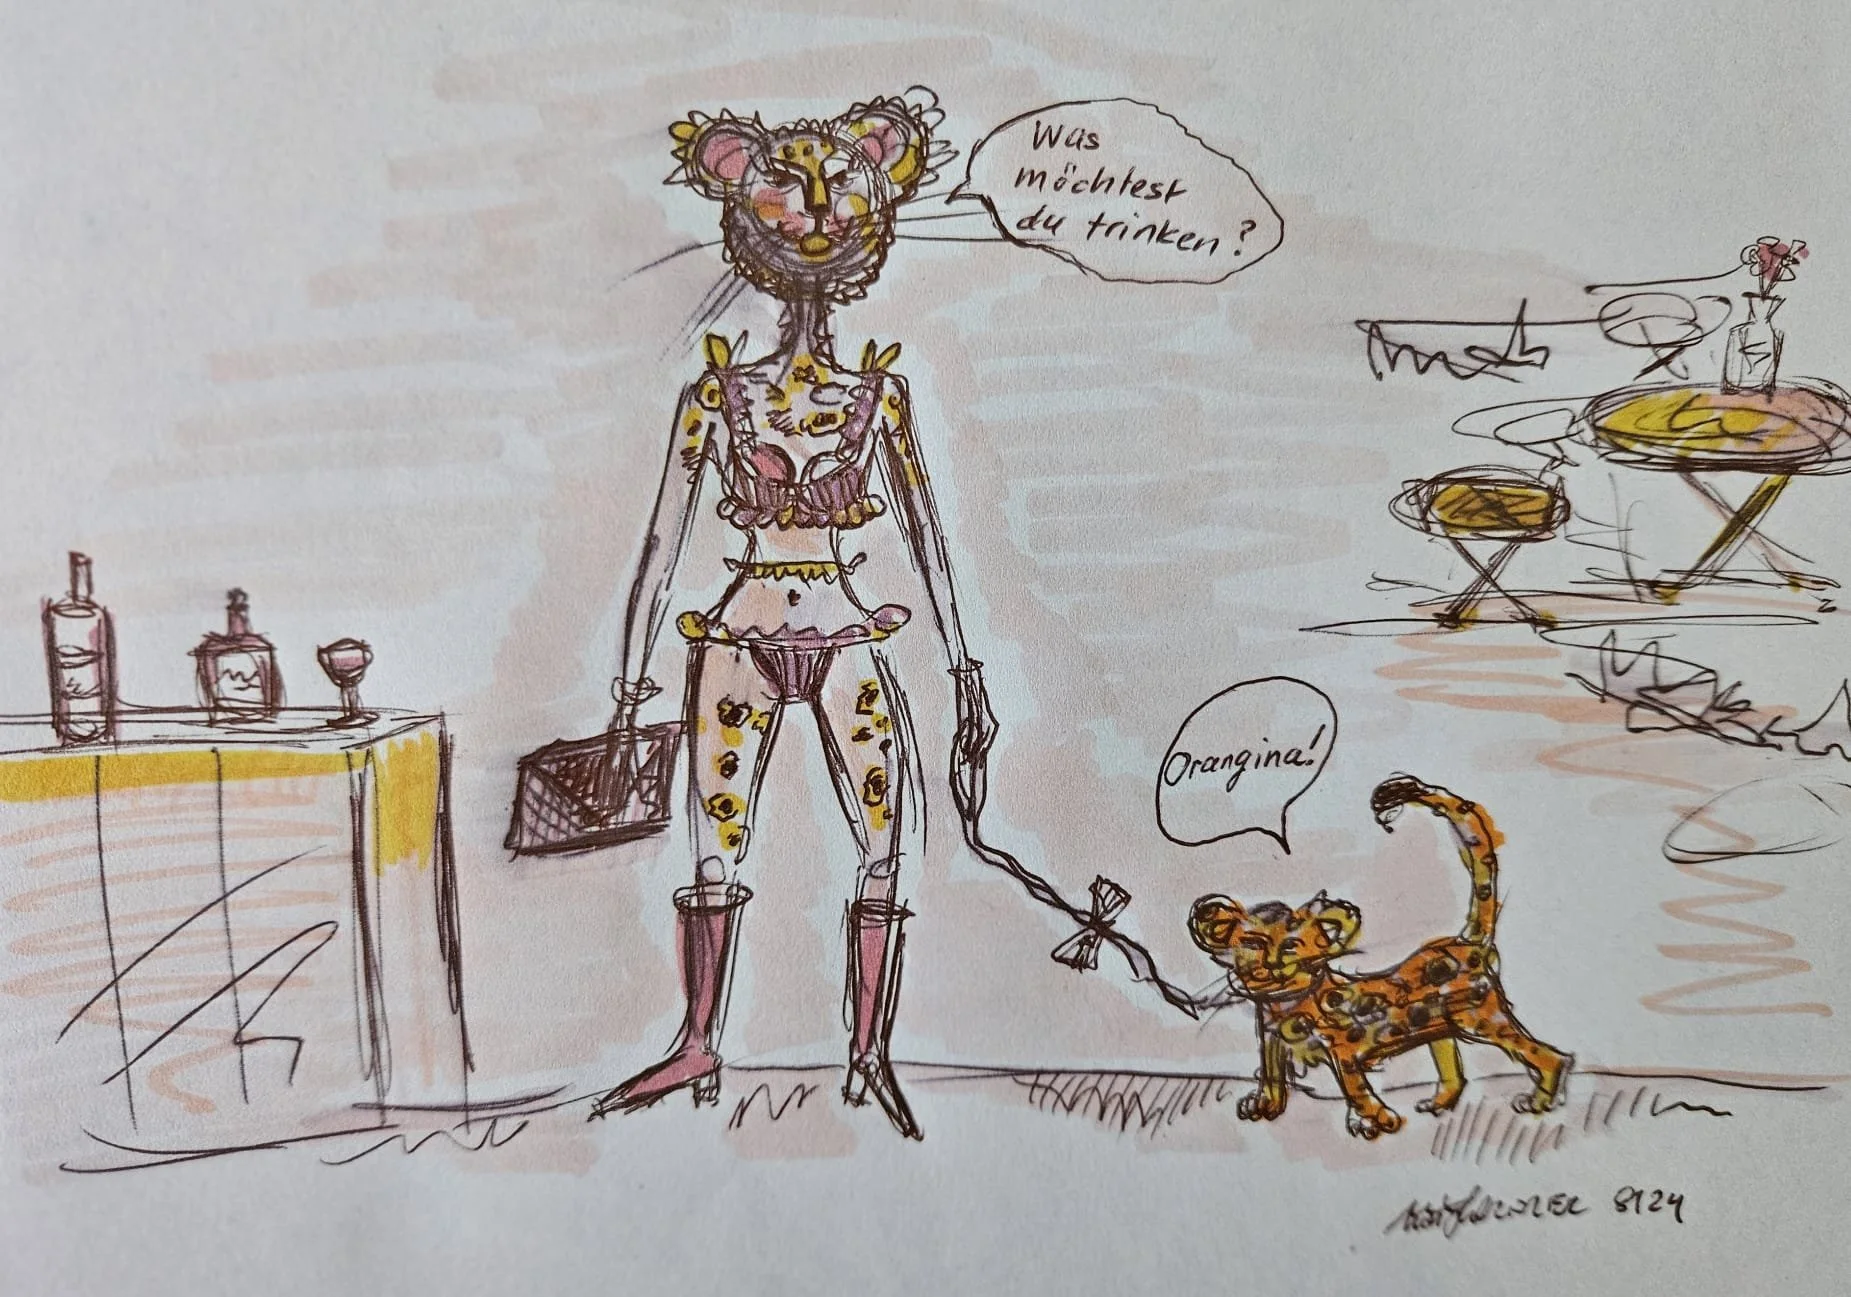 Was
möchtest
du trinken?
Orangina!
8124